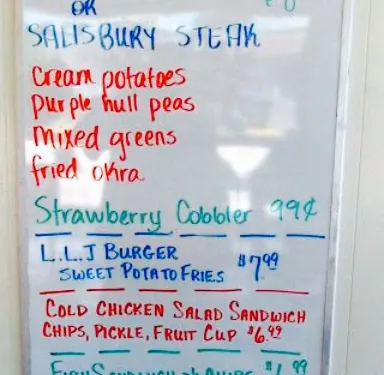 OR
SALISBURY STEAK
Cream potatoes
purple hull peas
Mixed greens
fried okra
Strawberry Cobbler 99¢
L.L.J BURGER $7.99
SWEET POTATO FRIES
COLD CHICKEN SALAD SANDWICH
CHIPS, PICKLE, FRUIT CUP $6.99